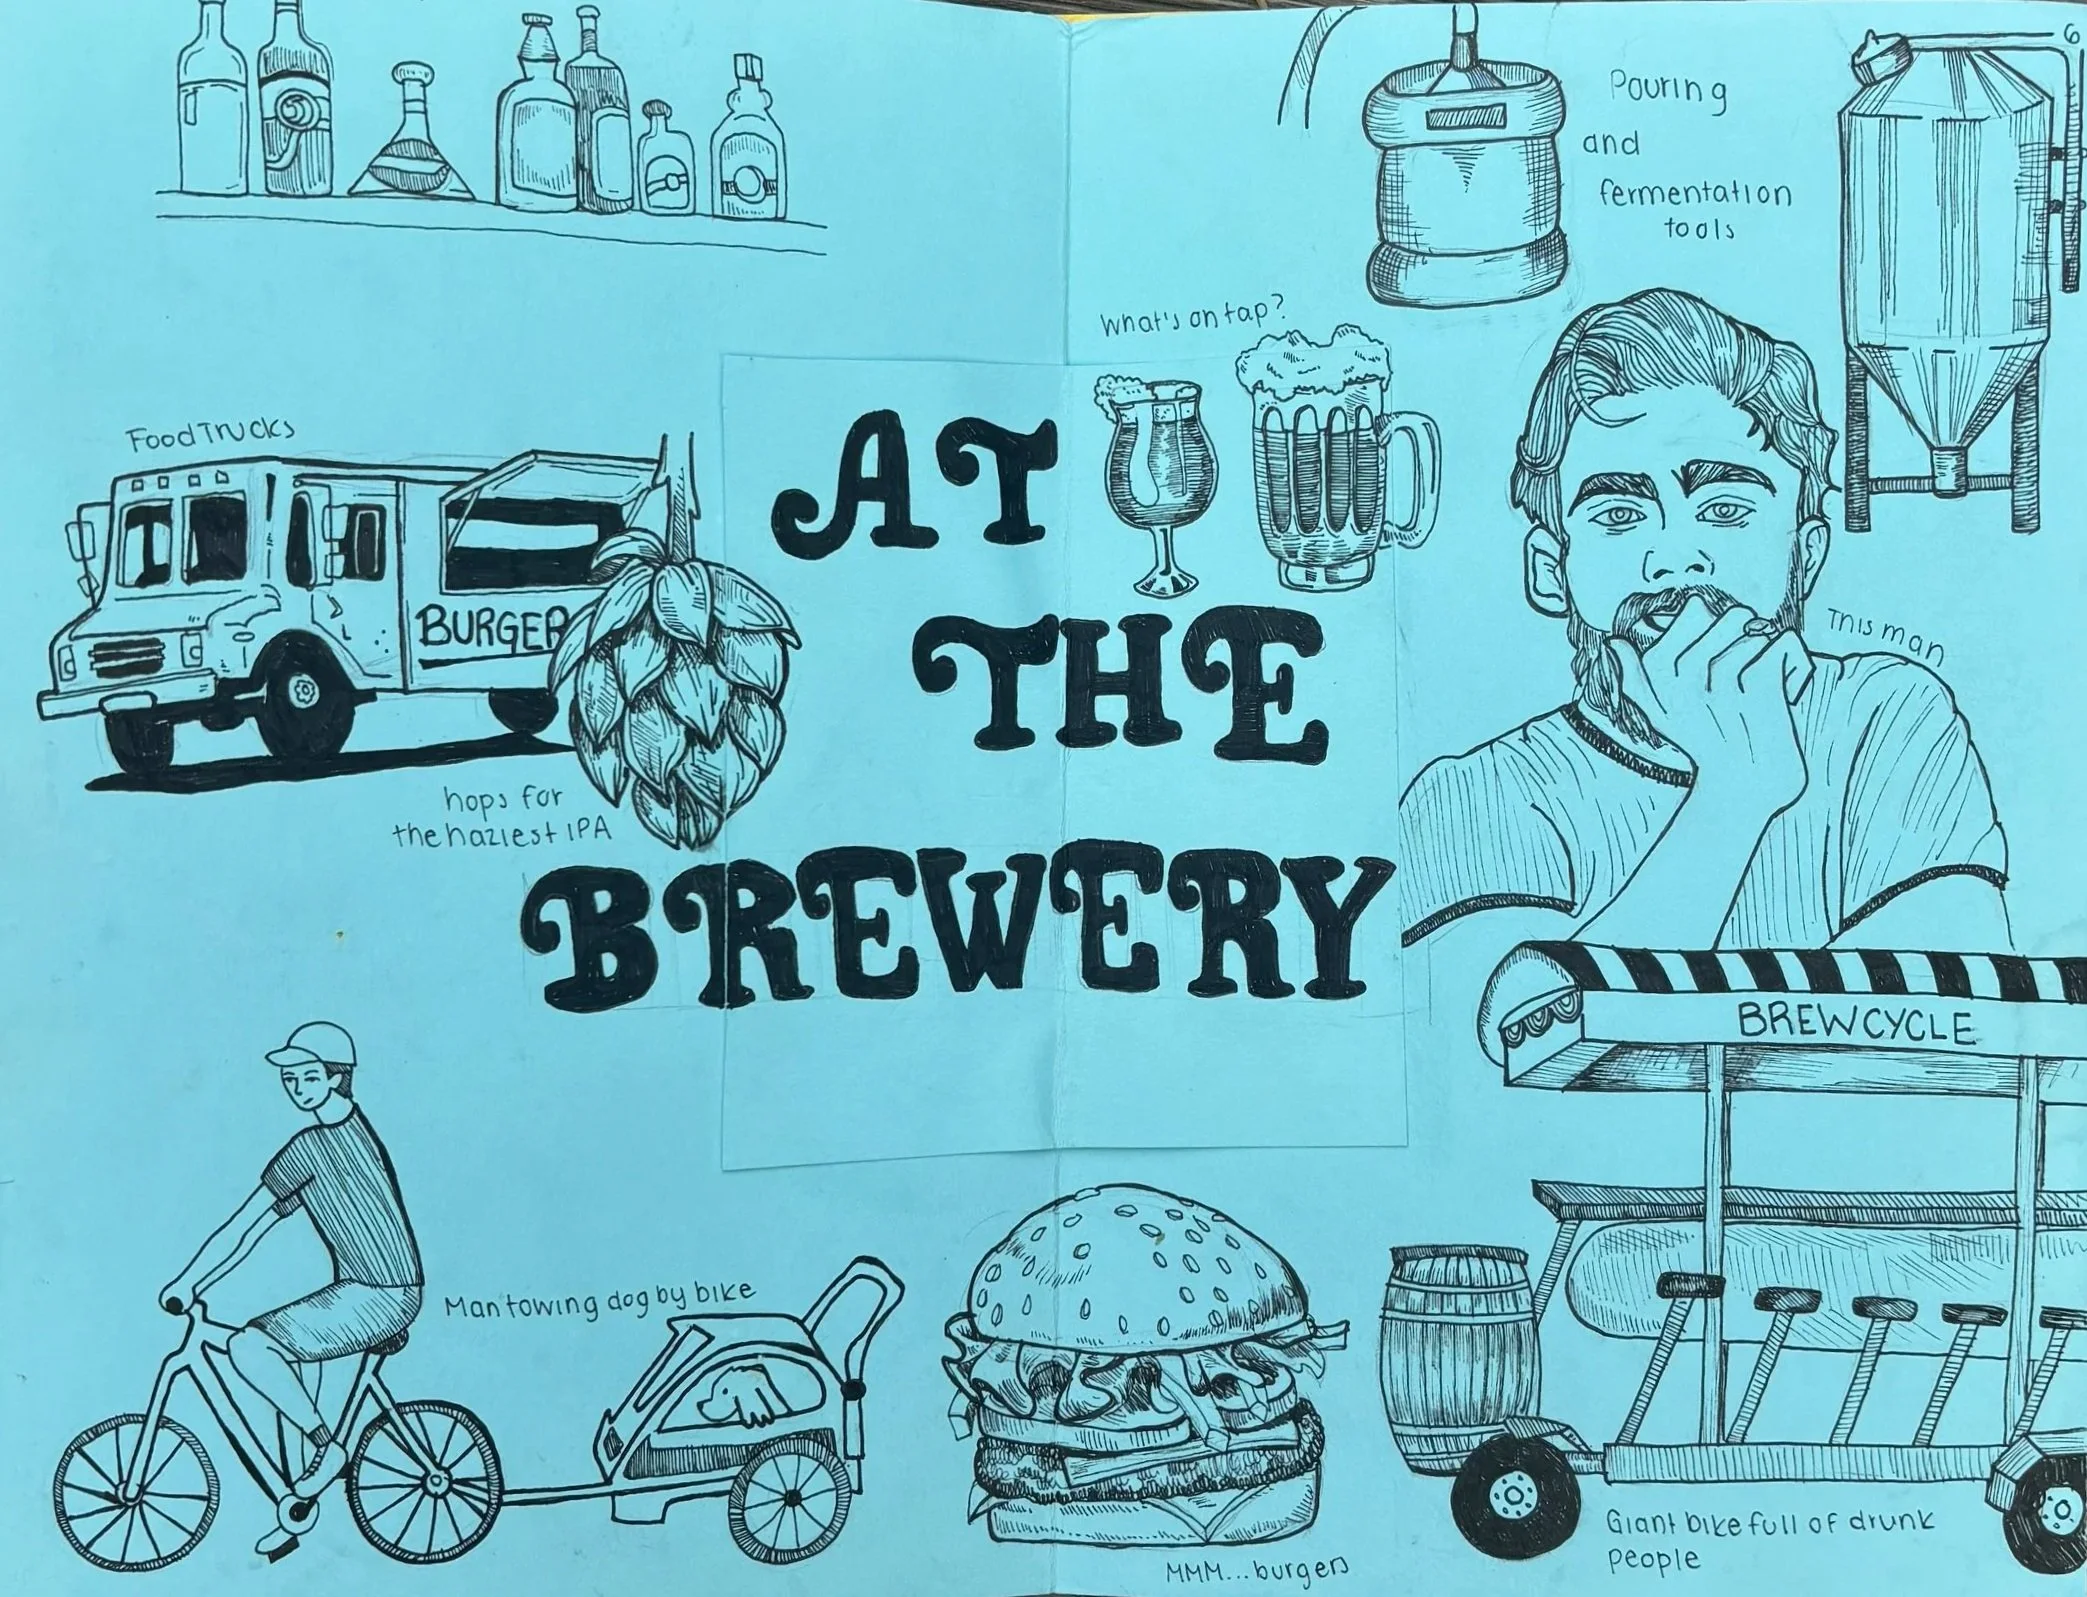 Pouring
and
fermentation
tools
What's on tap?
Food Trucks
BURGER
hops for
the haziest IPA
AT
THE
BREWERY
This man
BREWCYCLE
Man towing dog by bike
MMM...burgers
Giant bike full of drunk
people